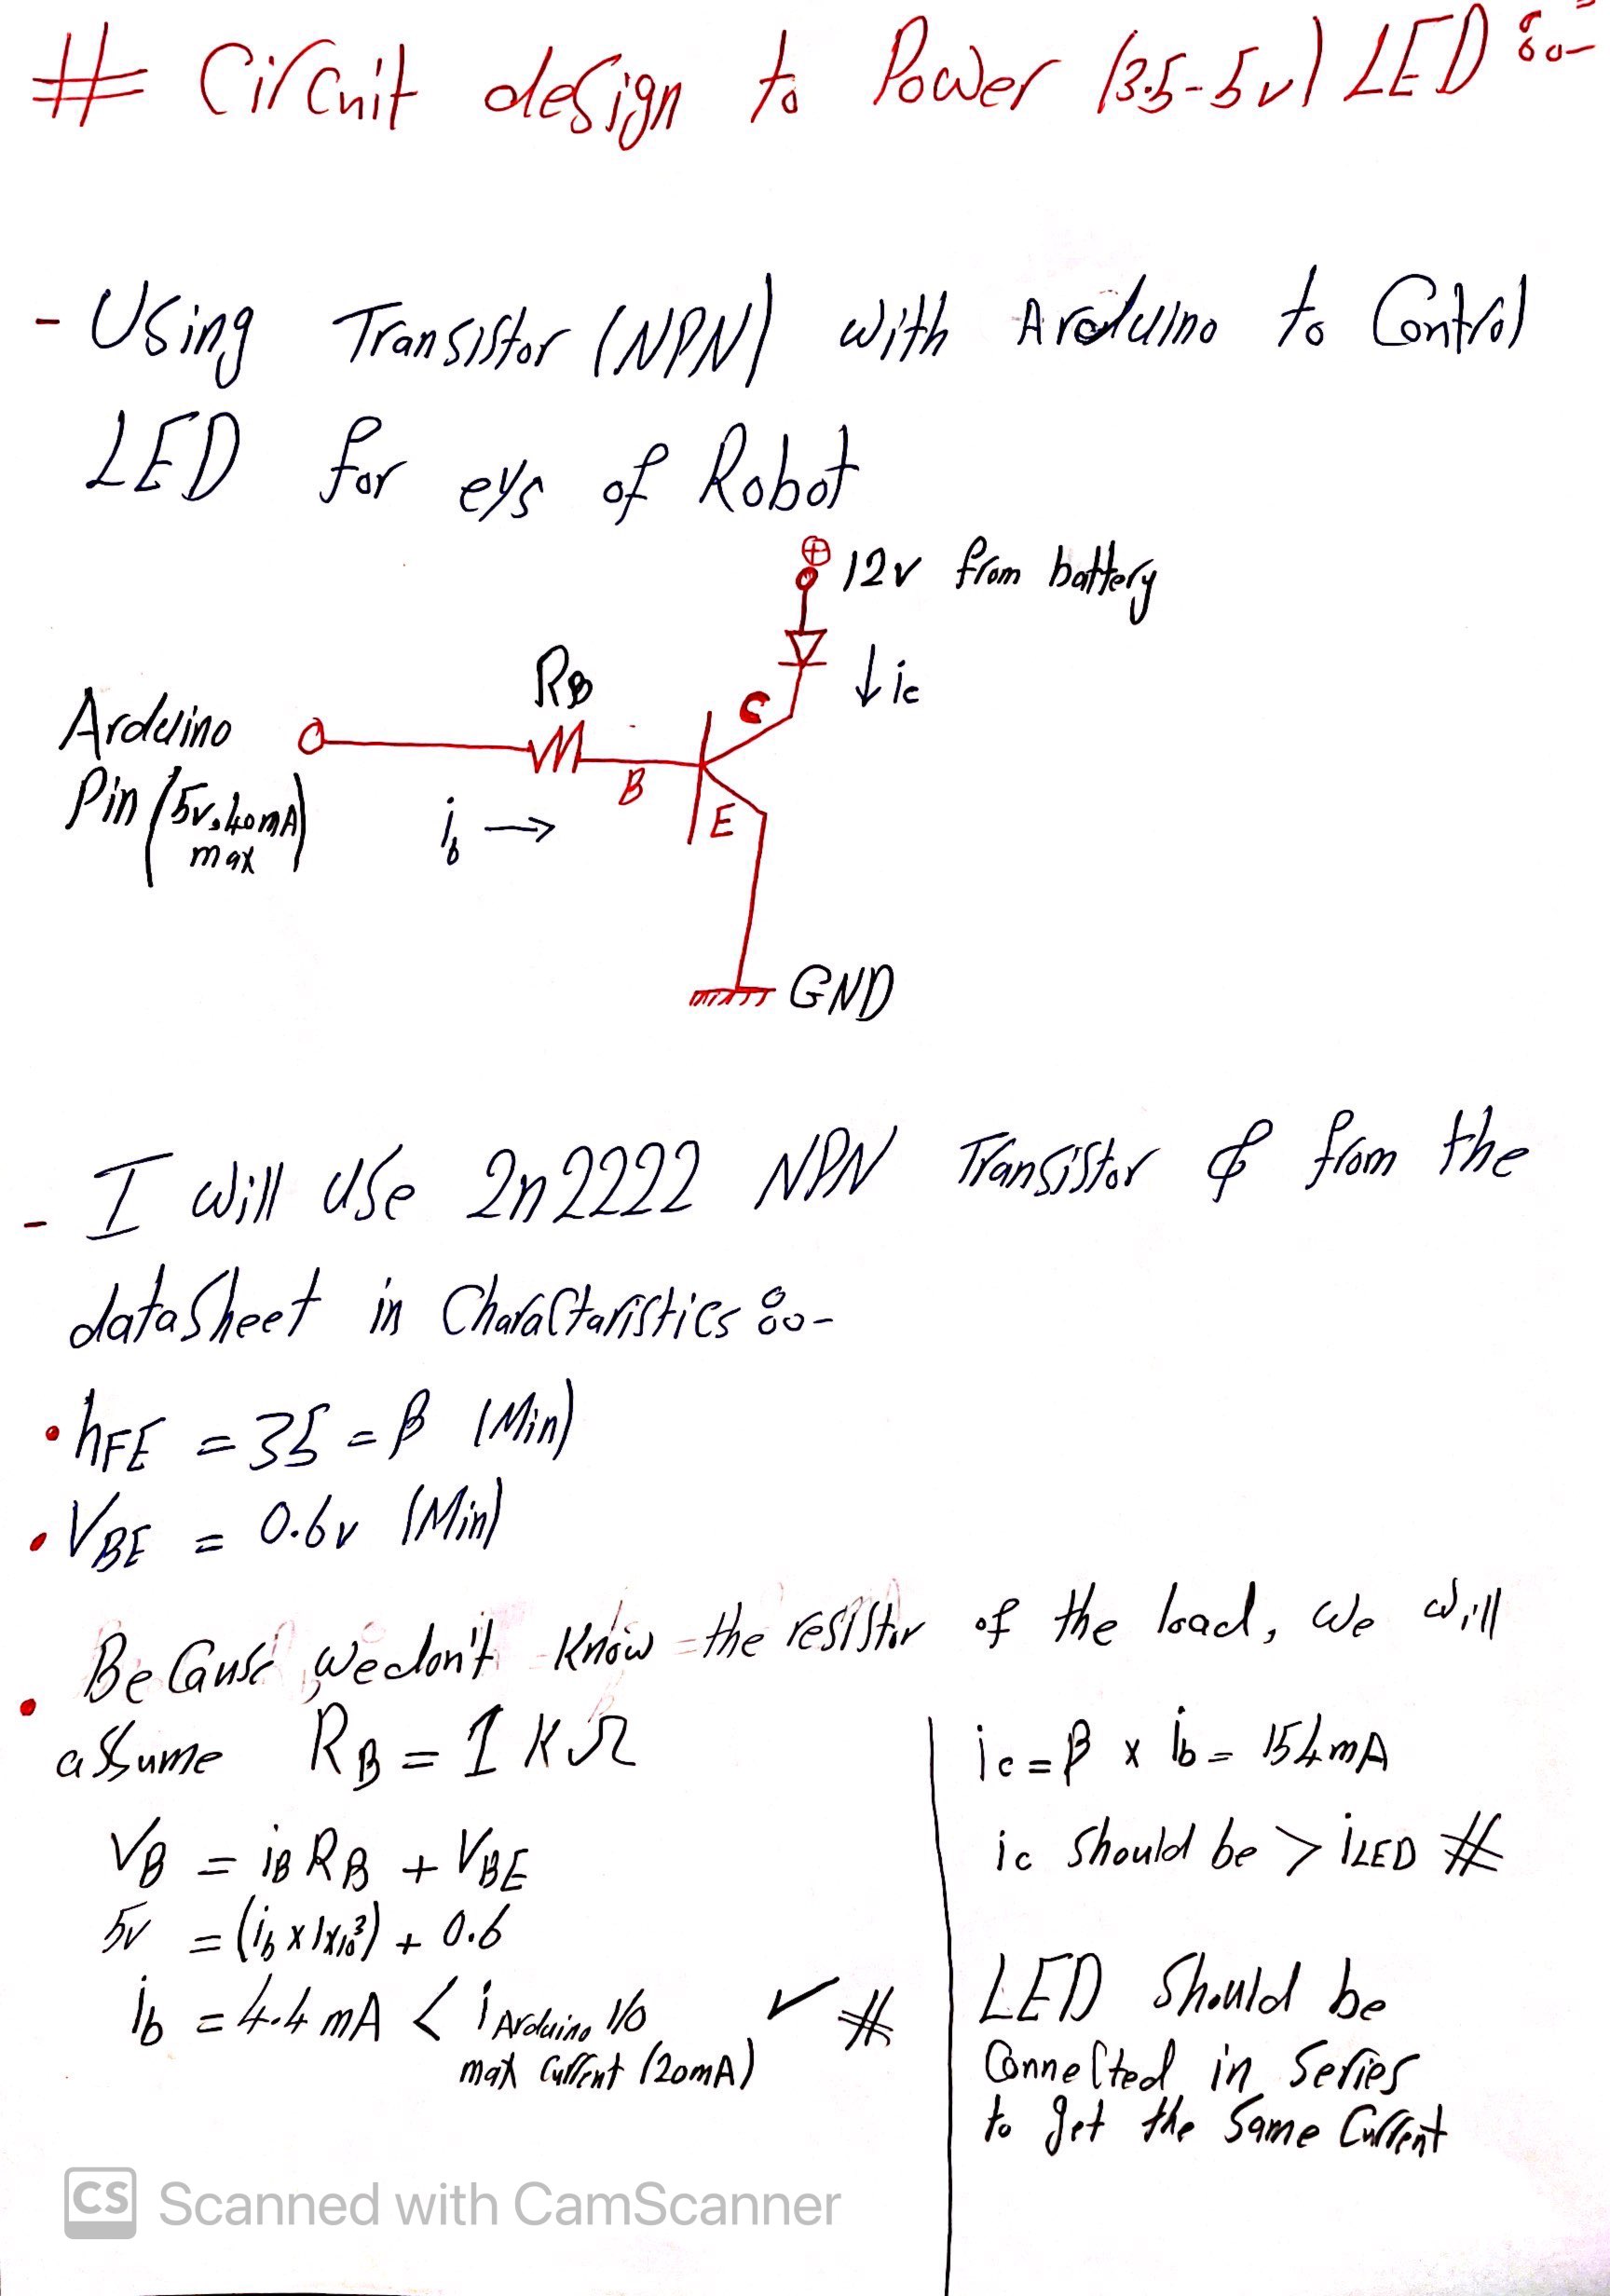 # Circuit design to Power (3.5-5v) LED :-
- Using Transistor (NPN) with Arduino to Control
LED for eys of Robot
⊕ 12v from battery
↓ ic
RB
C
Arduino
Pin (5v, 40mA)
max
ib →
B
E
GND
- I will use 2n2222 NPN Transistor & from the
datasheet in Charactaristics :-
• hFE = 35 = β (Min)
• VBE = 0.6v (Min)
• Because we don't Know the resistor of the load, we will
assume RB = 1 KΩ
VB = iB RB + VBE
5v = (ib x 1x10³) + 0.6
ib = 4.4 mA < i Arduino I/O ✓ #
max Current (20mA)
ic = β x ib = 154mA
ic should be > iLED #
LED should be
Connected in Series
to get the Same Current
CS Scanned with CamScanner